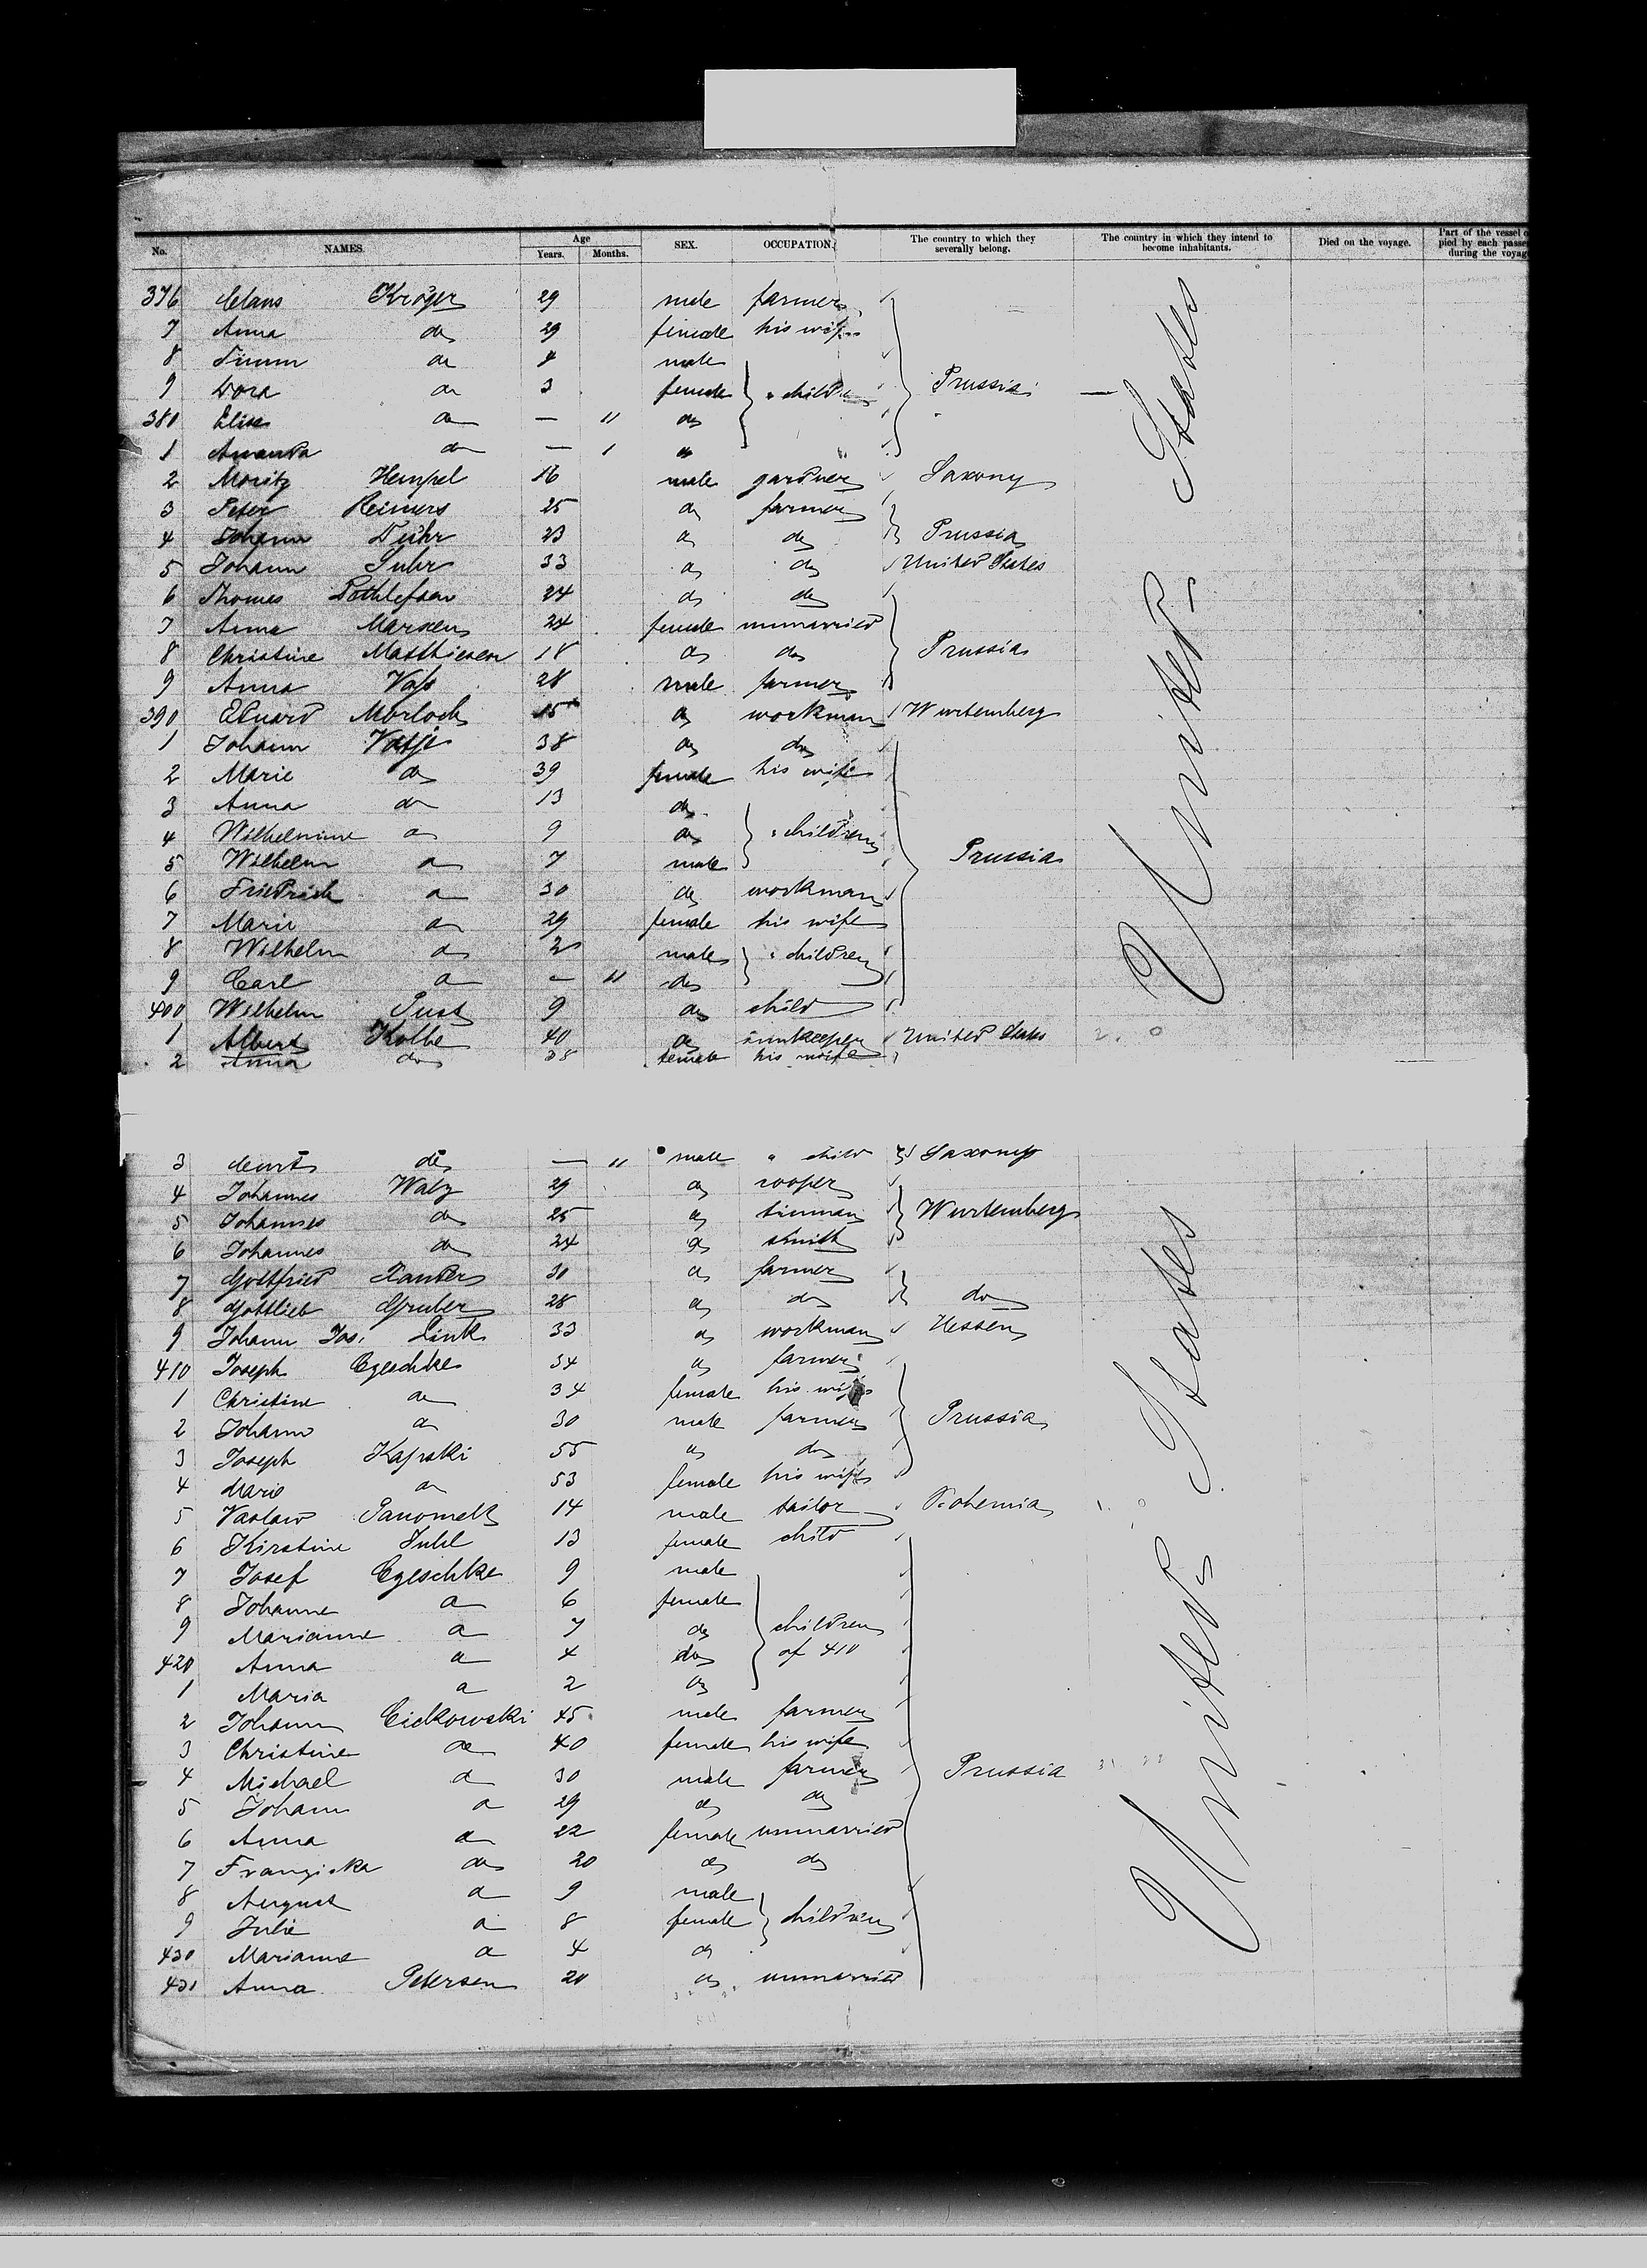 No. NAMES. Age Years. Months. SEX. OCCUPATION. The country to which they severally belong. The country in which they intend to become inhabitants. Died on the voyage. Part of the vessel o pied by each passe during the voyag
376 Claus Kröger 29 male farmer
7 Anna do 29 female his wife
8 Timm do 4 male
9 Dora do 3 female " children Prussia
380 Elise do — 11 do
1 Amanda do — 1 do
2 Moritz Hempel 16 male gardner Saxony
3 Peter Reimers 25 do farmer
4 Johann 23 do do Prussia
5 Johann Suhr 33 do do United States
6 Thomas Dethlefsen 24 do do
7 Anna Marxen 24 female unmarried
8 Christine Matthiesen 18 do do Prussia
9 Anna Voß 28 male farmer
390 Eduard Morlock 15 do workman Wurtemberg
1 Johann Vatje 38 do do
2 Marie do 39 female his wife
3 Anna do 13 do
4 Wilhelmine do 9 do " children
5 Wilhelm do 7 male Prussia
6 Friedrich do 30 do workman
7 Marie do 29 female his wife
8 Wilhelm do 2 male " children
9 Carl do — 11 do
400 Wilhelm Just 9 do child
1 Albert Kolbe 40 do innkeeper United States
2 Anna do 38 female his wife
United States
3 do — 11 male " child Saxony
4 Johannes Walz 29 do cooper
5 Johannes do 25 do tinman Wurtemberg
6 Johannes do 24 do smith
7 Gottfried Xander 30 do farmer
8 Gottlieb Gruber 28 do do do
9 Johann Jos. Link 33 do workman Hessen
410 Joseph Czeschke 34 do farmer
1 Christine do 34 female his wife
2 Johann do 30 male farmer Prussia
3 Joseph Kapski 55 do do
4 Marie do 53 female his wife
5 Vaslaw 14 male tailor Bohemia
6 Kirstine Juhl 13 female child
7 Josef Czeschke 9 male
8 Johanne do 6 female
9 Marianne do 7 do children
420 Anna do 4 do of 410
1 Maria do 2 do
2 Johann Cickowski 45 male farmer
3 Christine do 40 female his wife
4 Michael do 30 male farmer Prussia
5 Johann do 29 do do
6 Anna do 22 female unmarried
7 Franziska do 20 do do
8 August do 9 male
9 Julie do 8 female children
430 Marianne do 4 do
431 Anna Petersen 20 do unmarried
United States